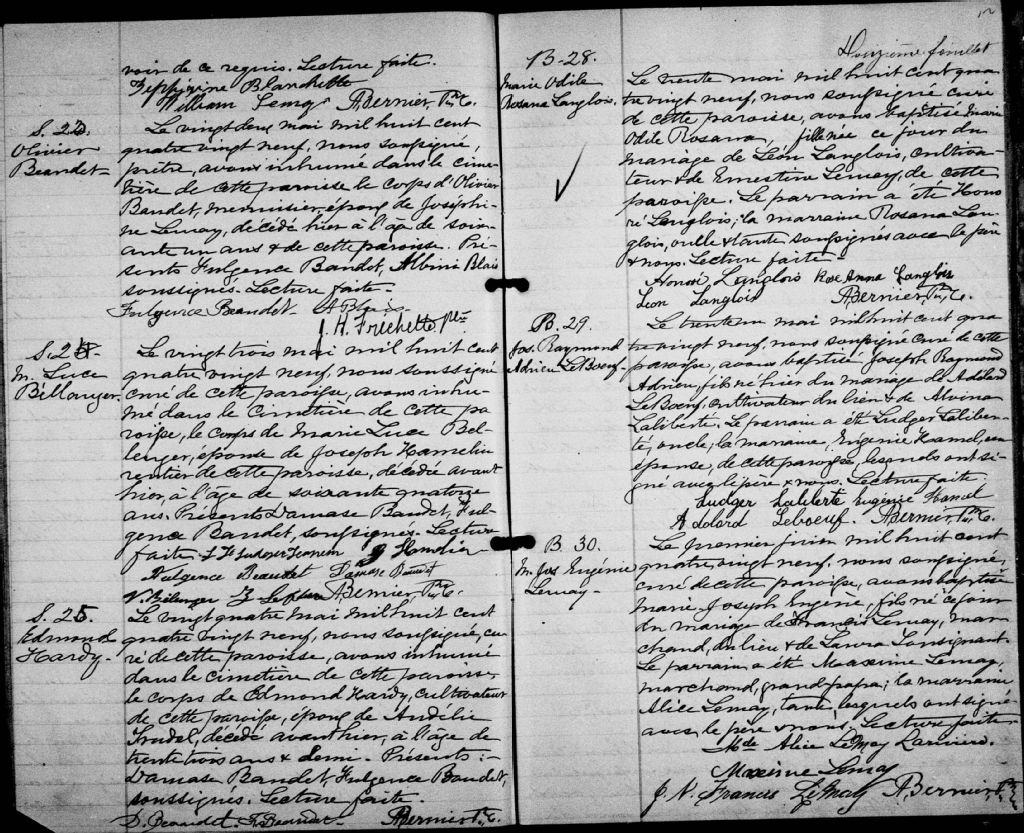 voir de ce requis. Lecture faite.
Zépphirine Blanchette
William Lemay ABernier, Ptre C.
S. 23.
Olivier
Beaudet
Le vingt deux mai mil huit cent
quatre vingt neuf, nous soussigné,
prêtre, avons inhumé dans le cime-
tière de cette paroisse le corps d'Olivier
Baudet, menuisier, époux de Joséphi-
ne Lemay, décédé hier à l'âge de soix-
ante un ans & de cette paroisse. Pré-
sents Fulgence Baudet, Albini Blais
soussignés. Lecture faite.
Fulgence Beaudet A Blais
J. H. Frechette Ptre
S. 24.
M. Luce
Bellanger.
Le vingt trois mai mil huit cent
quatre vingt neuf, nous soussigné
curé de cette paroisse, avons inhu-
mé dans le cimetière de cette pa
roisse, le corps de Marie Luce Bel-
lenger, épouse de Joseph Hamelin
rentier de cette paroisse, décédée avant
hier, à l'âge de soixante quatorze
ans. Présents Damase Baudet, Ful-
gence Baudet, soussignés. Lecture
faite.
Fulgence Beaudet Damase Beaudet
N. Bélanger ABernier, Ptre C.
S. 25.
Edmond
Hardy.
Le vingt quatre mai mil huit cent
quatre vingt neuf, nous soussigné, cu-
ré de cette paroisse, avons inhumé
dans le cimetière de cette paroisse,
le corps de Edmond Hardy, cultivateur
de cette paroisse, époux de Audélie
Trudel, décédé avant hier, à l'âge de
trente trois ans & demi. Présents:
Damase Baudet, Fulgence Baudet,
soussignés. Lecture faite.
D. Beaudet. F. Beaudet ABernier Pt. C.
Douzième feuillet
B-28.
Marie Odile
Rosana Langlois.
Le trente mai mil huit cent qua
tre vingt neuf, nous soussigné curé
de cette paroisse, avons baptisé Marie
Odile Rosana, fille née ce jour du
mariage de Léon Langlois, cultiva-
teur & de Ernestine Lemay, de cette
paroisse. Le parrain a été Hono
ré Langlois; la marraine Rosana Lan-
glois, oncle & tante soussignés avec le père
& nous. Lecture faite.
Honoré Langlois Rose Anna Langlois
Leon Langlois ABernier Ptre C.
B. 29.
Jos. Raymond
Adrien LeBoeuf.
Le trente un mai mil huit cent qua
tre vingt neuf, nous soussigné curé de cette
paroisse, avons baptisé Joseph Raymond
Adrien, fils né hier du mariage de Adélard
LeBoeuf, cultivateur du lieu & de Alvina
Laliberté. Le parrain a été Ludger Laliber-
té, oncle; la marraine, Eugénie Hamel, son
épouse, de cette paroisse, lesquels ont si-
gné avec le père & nous. Lecture faite.
Ludger Laliberte Eugénie Hamel
Adolard Leboeuf. ABernier, Ptre C.
B. 30.
M. Jos Eugénie
Lemay
Le premier juin mil huit cent
quatre vingt neuf, nous soussigné,
curé de cette paroisse, avons baptisé
Marie Joseph Eugène, fils né ce jour
du mariage de Francis Lemay, mar-
chand, du lieu & de Laura Lonsignant
Le parrain a été Maxime Lemay,
marchand, grand papa; la marraine
Alice Lemay, tante, lesquels ont signé
avec le père & nous. Lecture faite
Mde Alice LeMay Larivière.
Maxime Lemay
J. N. Francis LeMay ABernier Ptre C.